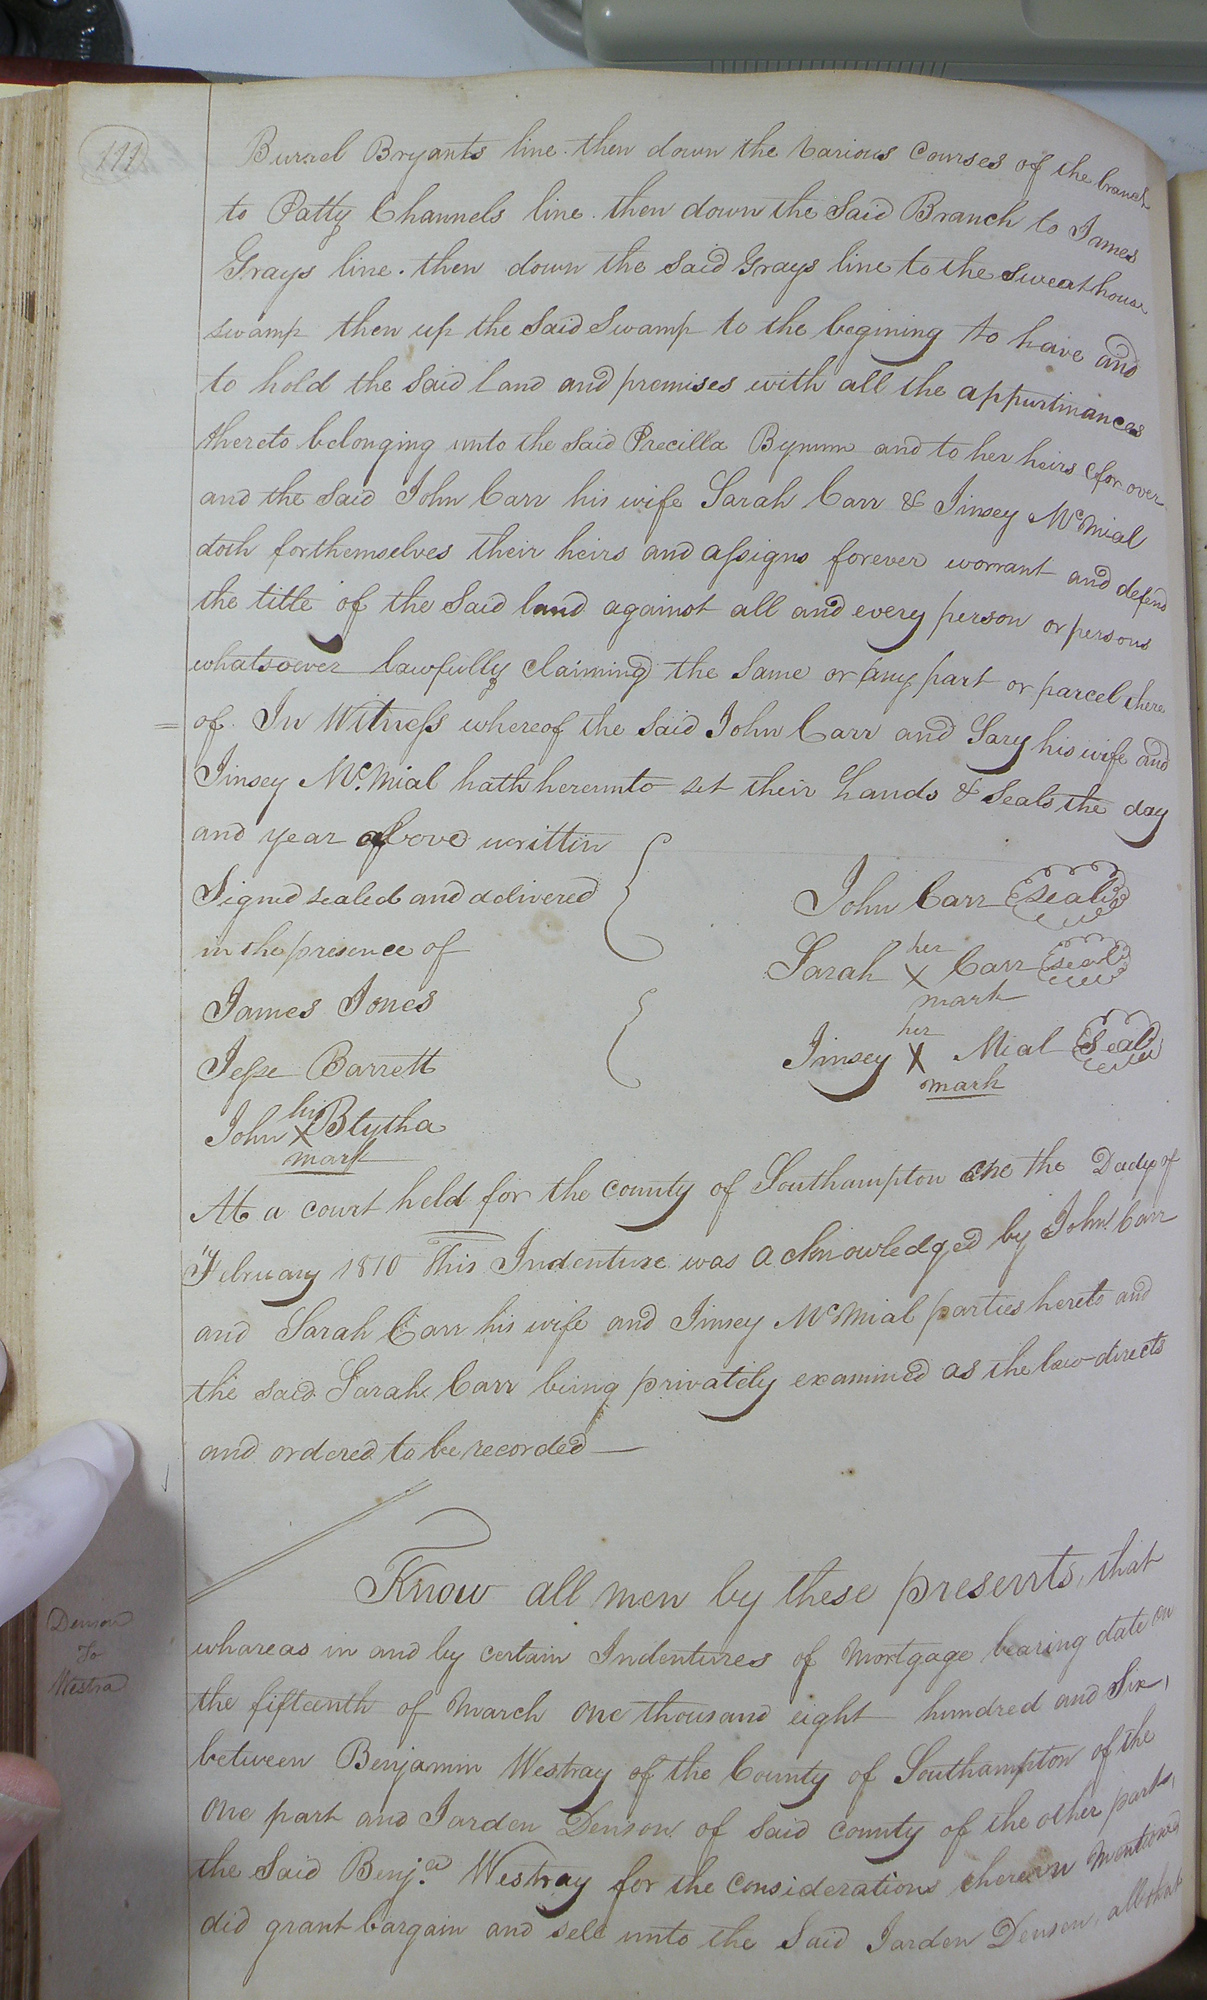 111
Burrel Bryants line then down the Various Courses of the branch
to Patty Channels line then down the Said Branch to James
Grays line. then down the said Grays line to the sweathouse
swamp then up the Said Swamp to the begining to have and
to hold the Said Land and premises with all the appurtinances
thereto belonging unto the Said Precilla Bynum and to her heirs for ever
and the Said John Carr his wife Sarah Carr & Jinsey McMial
doth for themselves their heirs and assigns forever worrant and defend
the title of the Said land against all and every person or persons
whatsoever lawfully claiming the same or any part or parcel there
of. In Witness whereof the Said John Carr and Sary his wife and
Jinsey Mc.Mial hath hereunto set their hands & Seals the day
and year above writtin
Signd sealed and delivered
in the presence of
James Jones
Jesse Barrett
his
John X Blytha
mark
John Carr seal
her
Sarah X Carr seal
mark
her
Jinsey X Mial Seal
mark
At a court held for the county of Southampton the of
February 1810 This Indenture was acknowledged by John Carr
and Sarah Carr his wife and Jinsey McMial parties hereto and
the said Sarah Carr being privately examined as the law directs
and ordered to be recorded
Denson
To
Westra
Know all men by these presents, that
whareas in and by certain Indentures of Mortgage bearing date on
the fifteenth of March One thousand eight hundred and Six,
between Benjamin Westray of the County of Southampton of the
One part and Jarden Denson of Said county of the other part,
the Said Benja. Westray for the Considerations therein Mentioned
did grant bargain and sell unto the Said Jarden Denson, all that